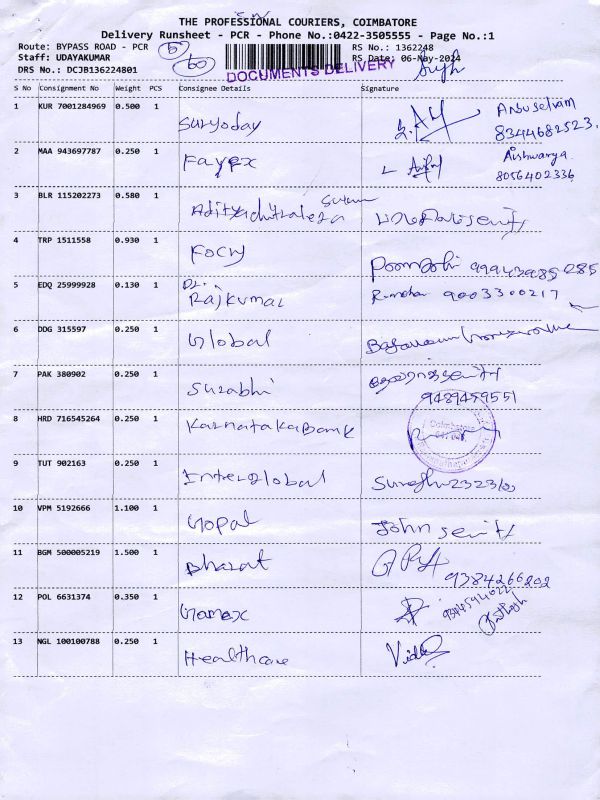 THE PROFESSIONAL COURIERS, COIMBATORE
Delivery Runsheet - PCR - Phone No.:0422-3505555 - Page No.:1
Route: BYPASS ROAD - PCR
RS No.: 1362248
Staff: UDAYAKUMAR
RS Date: 06-May-2024
DRS No.: DCJB136224801
DOCUMENTS DELIVERY
S No Consignment No Weight PCS Consignee Details Signature
1 KUR 7001284969 0.500 1 Suryoday Anbuselvam
8344682523
2 MAA 943697787 0.250 1 Fayex Aishwarya
8056402336
3 BLR 115202273 0.580 1 Adityachitraleza
4 TRP 1511558 0.930 1 Focy
5 EDQ 25999928 0.130 1 Dr. Rajkumar 9003300217
6 DDG 315597 0.250 1 Global
7 PAK 380902 0.250 1 Surabhi
9489459551
8 HRD 716545264 0.250 1 Karnataka Bank Coimbatore
9 TUT 902163 0.250 1 Interglobal
10 VPM 5192666 1.100 1 Gopal John
11 BGM 500005219 1.500 1 Bharat
9384266202
12 POL 6631374 0.350 1 Gamex
13 NGL 100100788 0.250 1 Healthcare